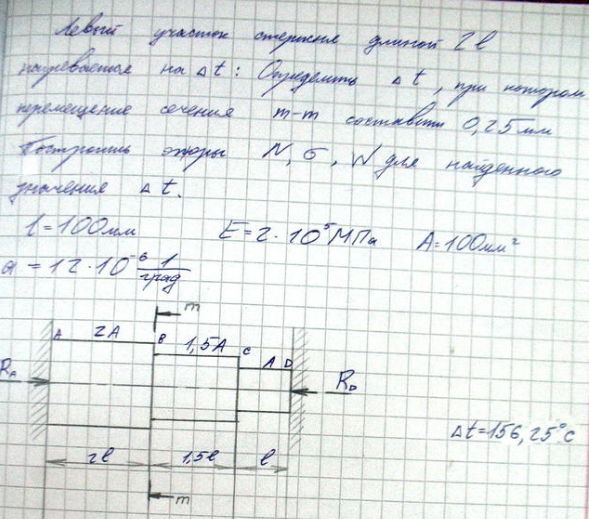 Левый участок стержня длиной 2l
нагревается на Δt: Определить Δt, при котором
перемещение сечения m-m составит 0,25мм
Построить эпюры N, σ, W для найденного
значения Δt.
l=100мм E=2·10⁵МПа A=100мм²
α=12·10⁻⁶ 1/град
m
A 2A B 1,5A C A D
R_A R_D
Δt=156,25°C
2l 1,5l l
m